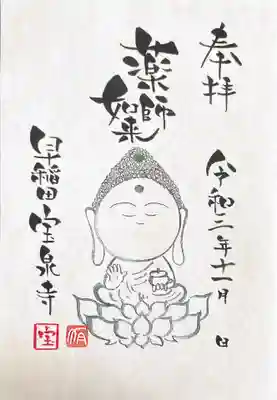 奉拝
令和二年十一月 日
薬師
如来
早稲田 宝泉寺
宝